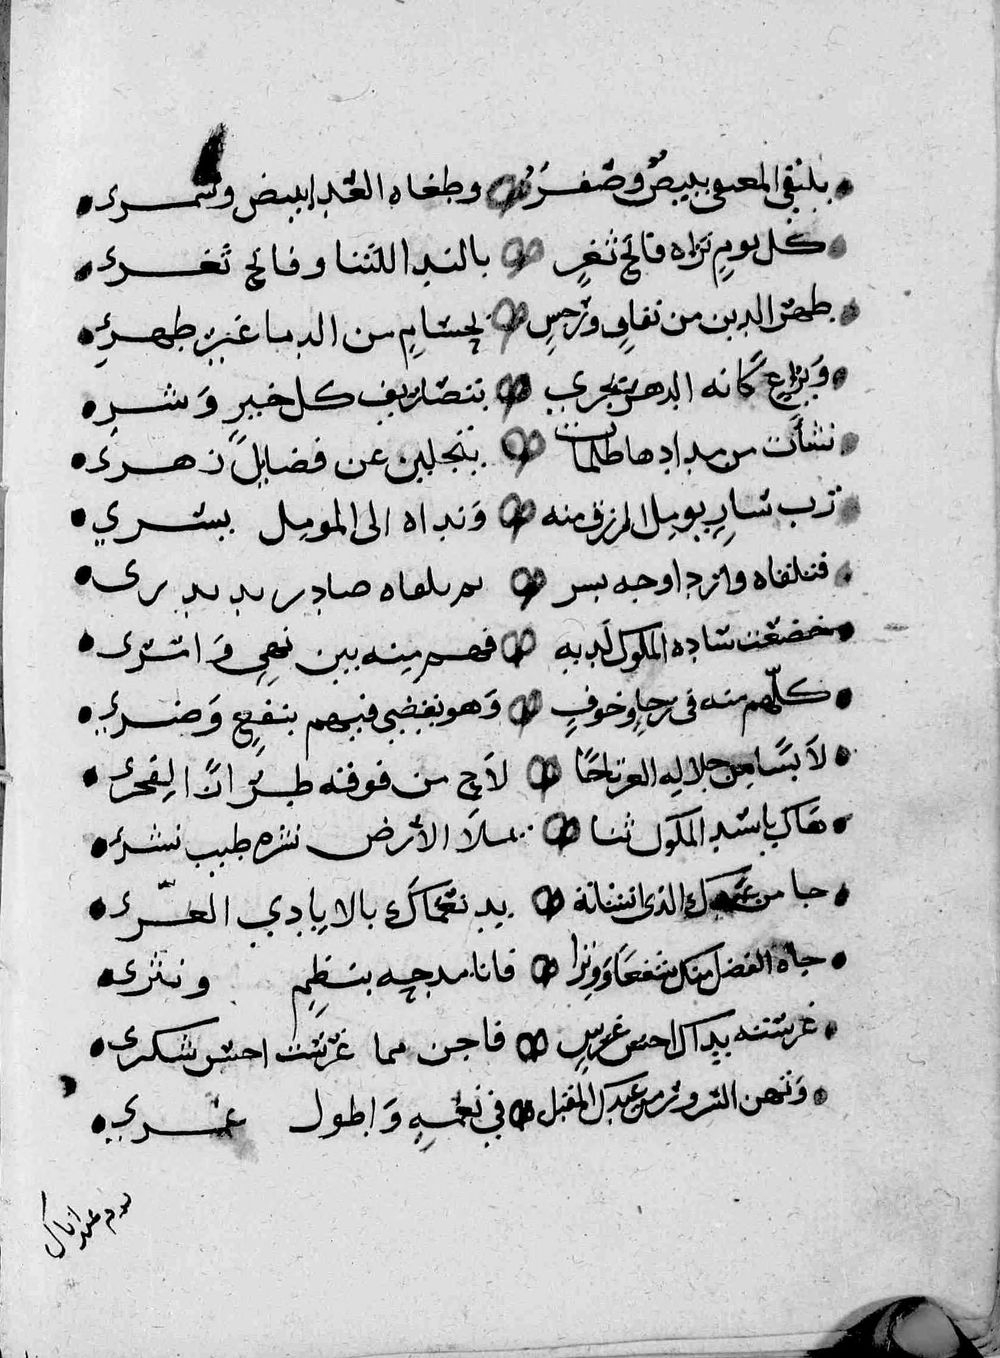 يلتقي المعتفي ببيض وصفر وطغاه العدا ببيض وسمر
كل يوم نراه فاتح ثغر بالندا للثنا وفاتح ثغر
طهر الدين من نفاق ورجس بحسام من الدما غير طهر
ويراع كانه الدهر يجري بتصاريف كل خير وشر
نشأت من مدادها ظلمات يتجلين عن فضايل زهر
رب سار يومل الرزق منه ونداه الى المومل يسري
فتلقاه وارد اوجه يسر
خضعت سادة الملوك لديه فهم منه بين نهي وامر
كلهم منه في رجا وخوف وهو يقضي فيهم بنفع وضر
لابسا من جلاله العز تاجا لاح من فوقه طراز الفخر
هاك يا سيد الملوك ثنا يملا الأرض نشره طيب نشر
جا من عبدك الذي انشاته يد نعماك بالايادي الغر
جاه الفضل منك شفعا ووترا فاتا مدحه بنظم ونثر
غرسته يداك احسن غرس فاجن مما غرست احسن شكر
وتهن السرور من عبدك المقبل في نعمة واطول عمر